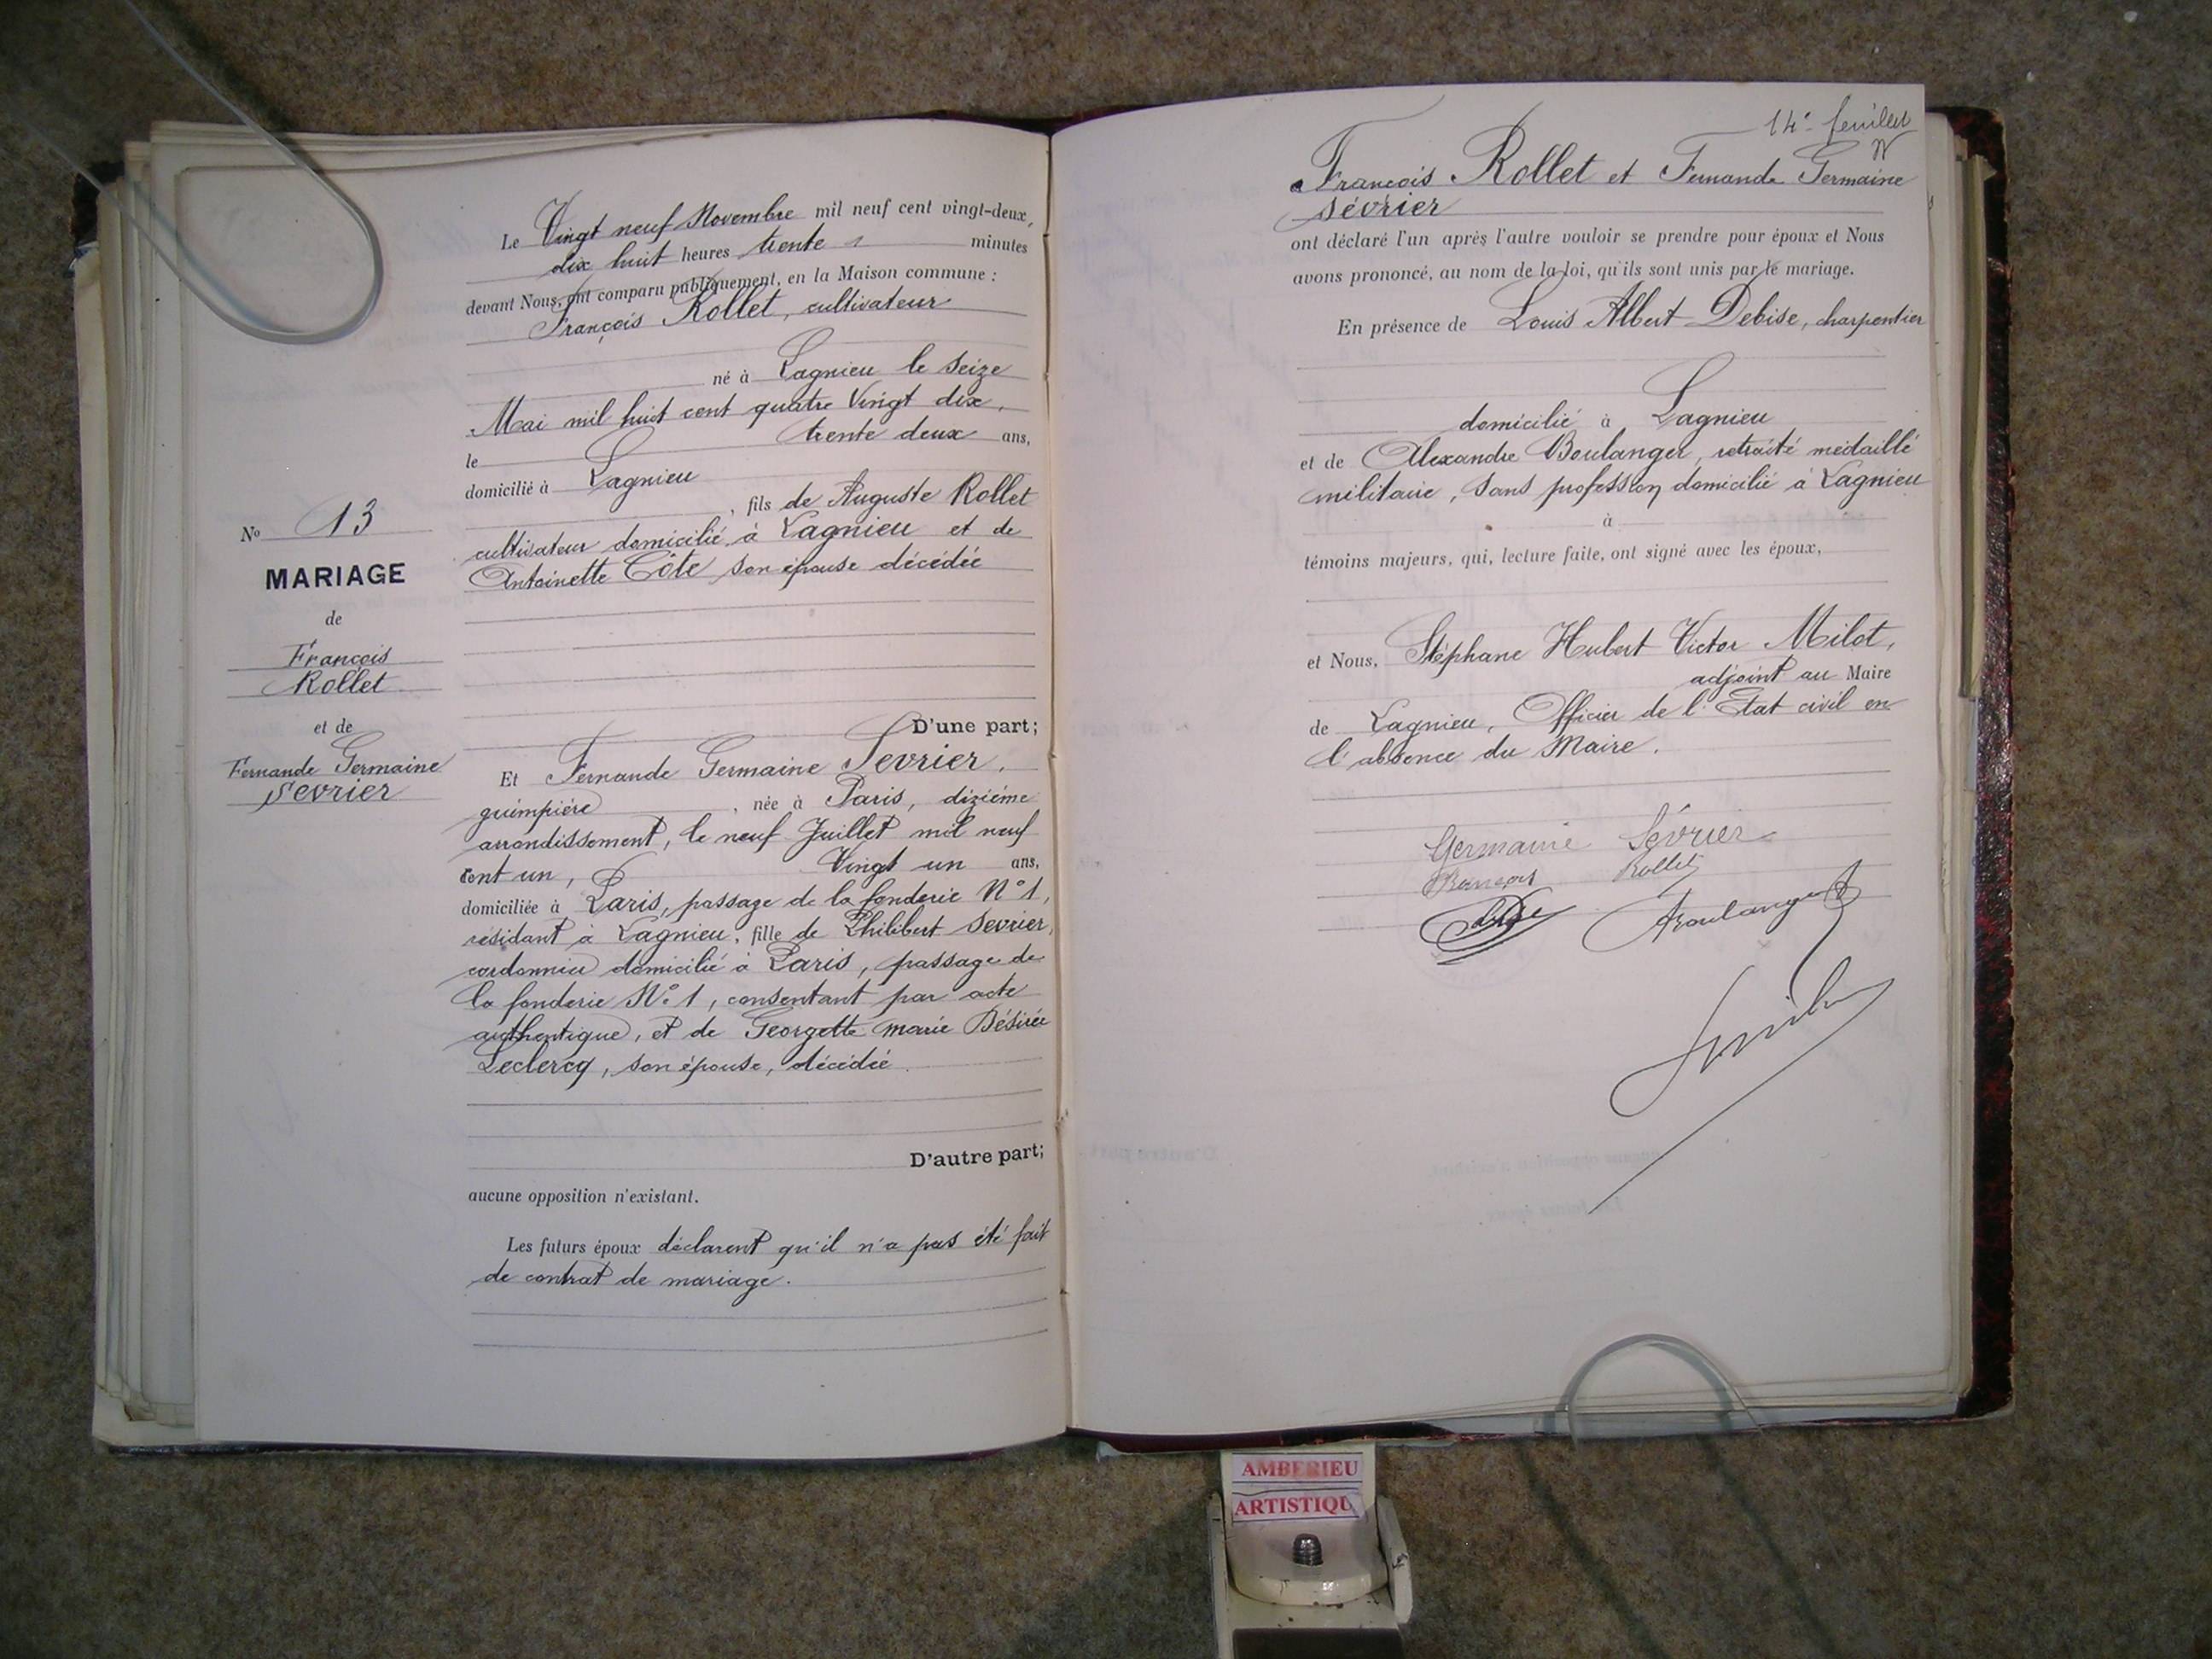 Le Vingt neuf Novembre mil neuf cent vingt-deux,
dix huit heures trente minutes
devant Nous, ont comparu publiquement, en la Maison commune :
François Rollet, cultivateur
né à Lagnieu le seize
Mai mil huit cent quatre Vingt dix,
le trente deux ans,
domicilié à Lagnieu
, fils de Auguste Rollet
cultivateur domicilié à Lagnieu et de
Antoinette Côte son épouse décédée
D'une part;
Et Fernande Germaine Sevrier,
guimpière, née à Paris, dizième
arrondissement, le neuf Juillet mil neuf
cent un, Vingt un ans,
domiciliée à Paris, passage de la fonderie N° 1,
résidant à Lagnieu, fille de Philibert Sevrier,
cordonnier domicilié à Paris, passage de
la fonderie N° 1, consentant par acte
authentique, et de Georgette Marie Désirée
Leclercq, son épouse, décédée.
D'autre part;
aucune opposition n'existant.
Les futurs époux déclarent qu'il n'a pas été fait
de contrat de mariage.
No 13
MARIAGE
de
François
Rollet
et de
Fernande Germaine
Sevrier
14e feuillet
François Rollet et Fernande Germaine
Sévrier
ont déclaré l'un après l'autre vouloir se prendre pour époux et Nous
avons prononcé, au nom de la loi, qu'ils sont unis par le mariage.
En présence de Louis Albert Debise, charpentier
domicilié à Lagnieu
et de Alexandre Boulanger, retraité médaillé
militaire, sans profession domicilié à Lagnieu
à
témoins majeurs, qui, lecture faite, ont signé avec les époux,
et Nous, Stéphane Hubert Victor Milot,
adjoint au Maire
de Lagnieu, Officier de l'Etat civil en
l'absence du Maire.
Germaine Sévrier
François Rollet
Aboulanger
AMBERIEU
ARTISTIQU